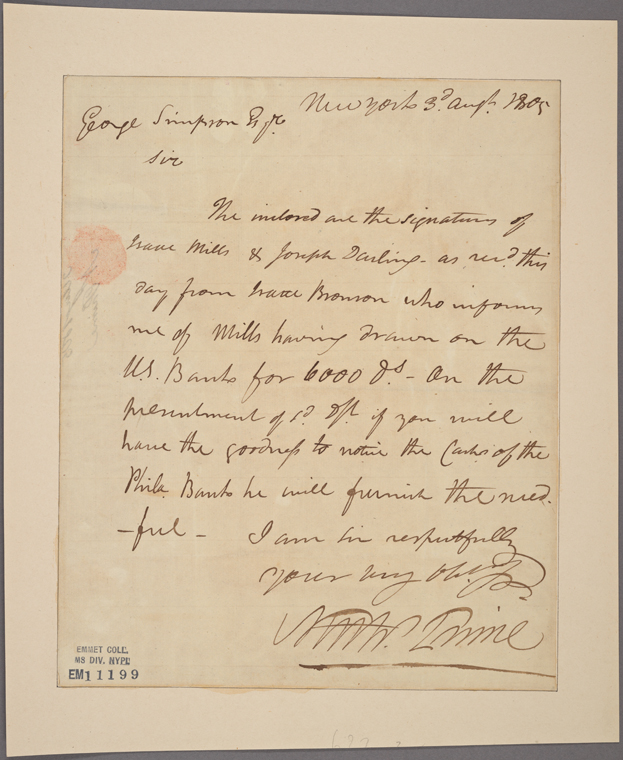 New York 3d. Augt. 1805
George Simpson Esqre
Sir
The inclosed are the signatures of
Isaac Mills & Joseph Darling - as recd. this
day from Isaac Bronson who informs
me of Mills having drawn on the
U.S. Bank for 6000 Ds. - On the
presentment of sd. Dft. if you will
have the goodness to notice the Cashr. of the
Phila. Bank he will furnish the need-
-ful - I am Sir respectfully
your
Prime
EMMET COLL.
MS DIV. NYPL
EM11199